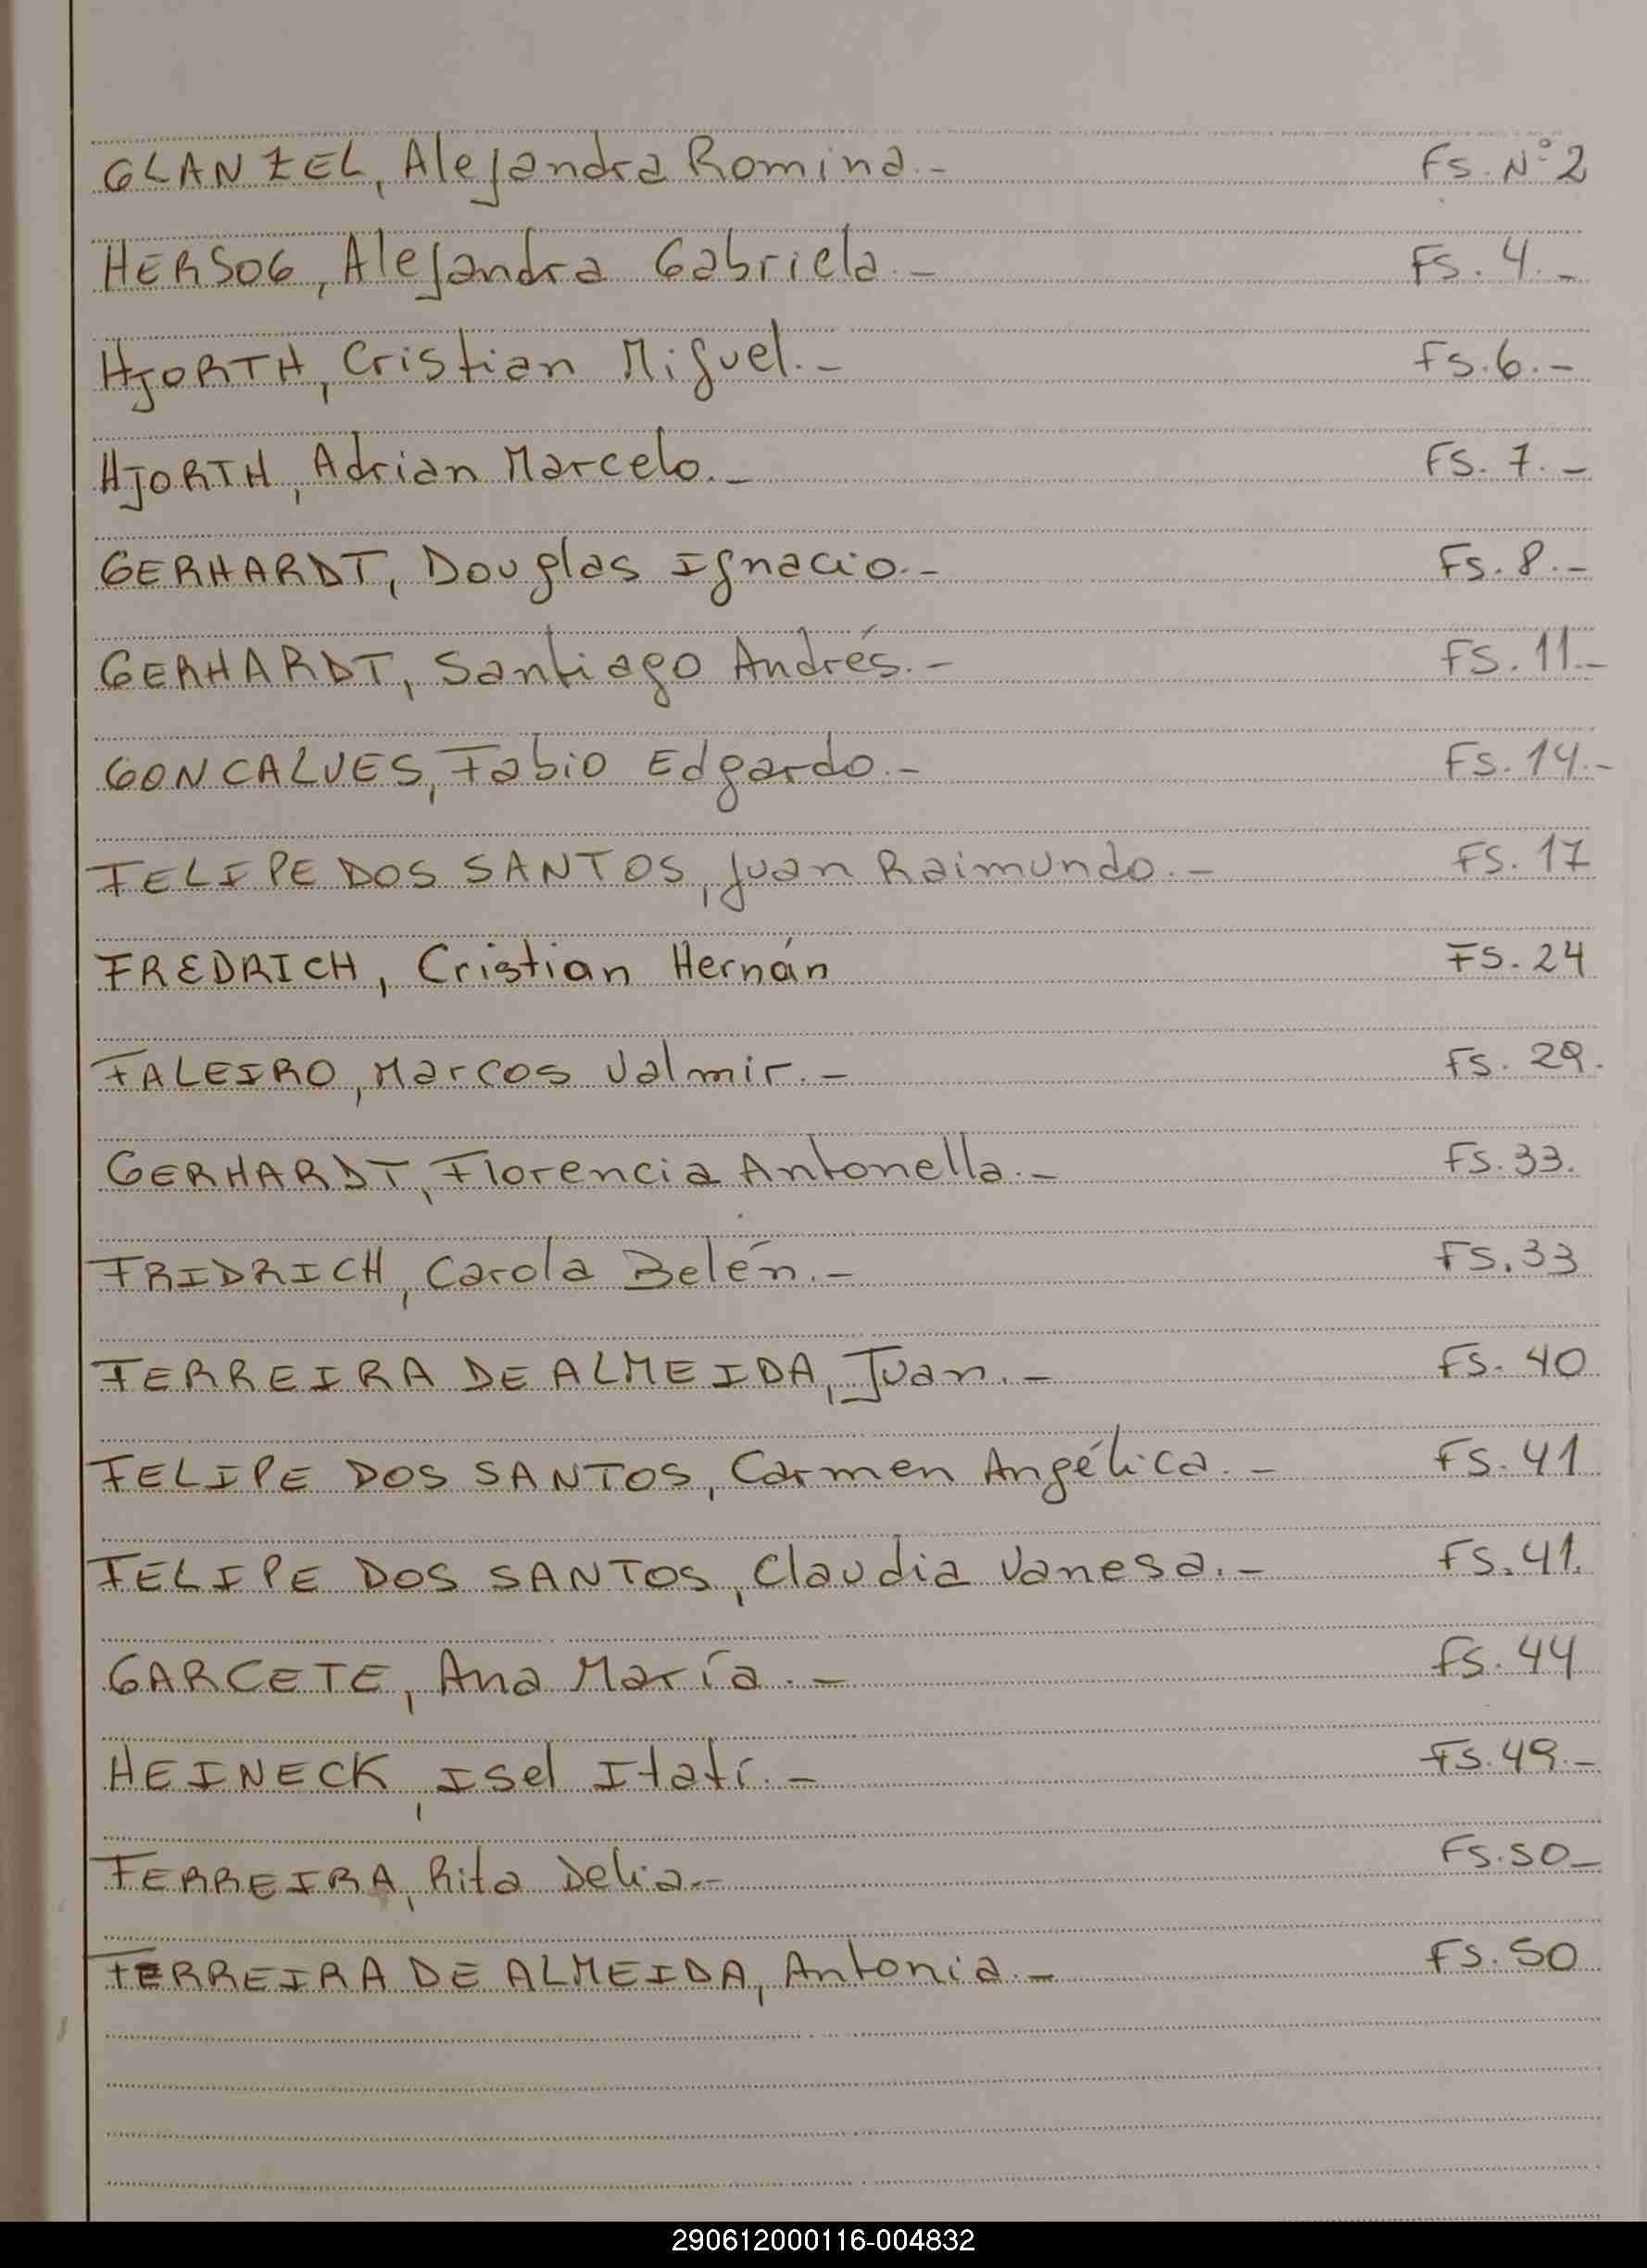 GLANZEL, Alejandra Romina.- Fs. N° 2
HERSOG, Alejandra Gabriela.- Fs. 4.-
HJORTH, Cristian Miguel.- Fs. 6.-
HJORTH, Adrian Marcelo.- Fs. 7.-
GERHARDT, Douglas Ignacio.- Fs. 8.-
GERHARDT, Santiago Andrés.- Fs. 11.-
GONCALVES, Fabio Edgardo.- Fs. 14.-
FELIPE DOS SANTOS, Juan Raimundo.- Fs. 17
FREDRICH, Cristian Hernán Fs. 24
FALEIRO, Marcos Valmir.- Fs. 29.
GERHARDT, Florencia Antonella.- Fs. 33.
FRIDRICH, Carola Belén.- Fs. 33
FERREIRA DE ALMEIDA, Juan.- Fs. 40
FELIPE DOS SANTOS, Carmen Angélica.- Fs. 41
FELIPE DOS SANTOS, Claudia Vanesa.- Fs. 41.
GARCETE, Ana María.- Fs. 44
HEINECK, Isel Itatí.- Fs. 49.-
FERREIRA, Rita Delia.- Fs. 50_
FERREIRA DE ALMEIDA, Antonia.- Fs. 50
290612000116-004832